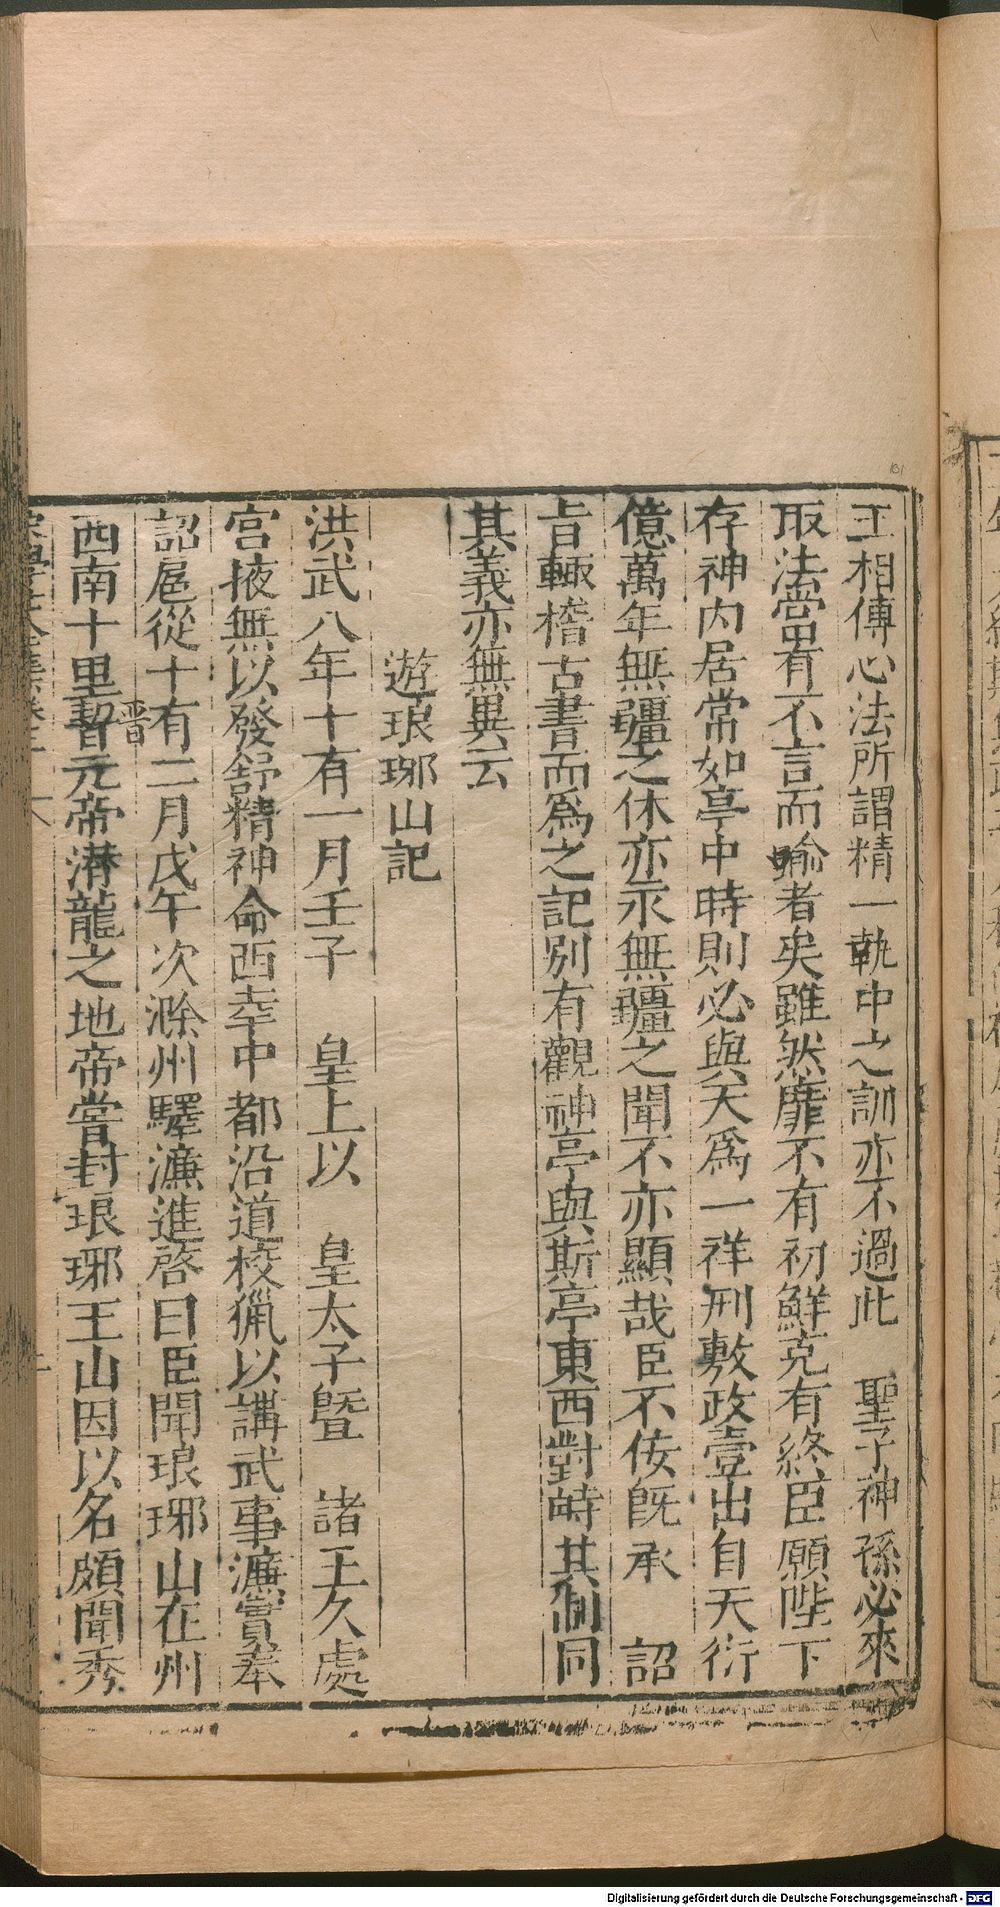 王相傳心法所謂精一執中之訓亦不過此　聖子神孫必來
取法當有不言而喻者矣雖然靡不有初鮮克有終臣願陛下
存神内居常如亭中時則必與天爲一祥刑敷政壹出自天衍
億萬年無疆之休亦永無疆之聞不亦顯哉臣不佞既承　詔
㫖輙稽古書而爲之記别有觀神亭與斯亭東西對峙其制同
其義亦無異云
遊琅琊山記
洪武八年十有一月壬子　皇上以　皇太子曁　諸王久處
宫掖無以發舒精神命西幸中都沿道校獵以講武事濂實奉
詔扈從十有二月戊午次滁州驛濂進啓曰臣聞琅琊山在州
晉
西南十里晉元帝潜龍之地帝嘗封琅琊王山因以名頗聞秀
Digitalisierung gefördert durch die Deutsche Forschungsgemeinschaft - DFG